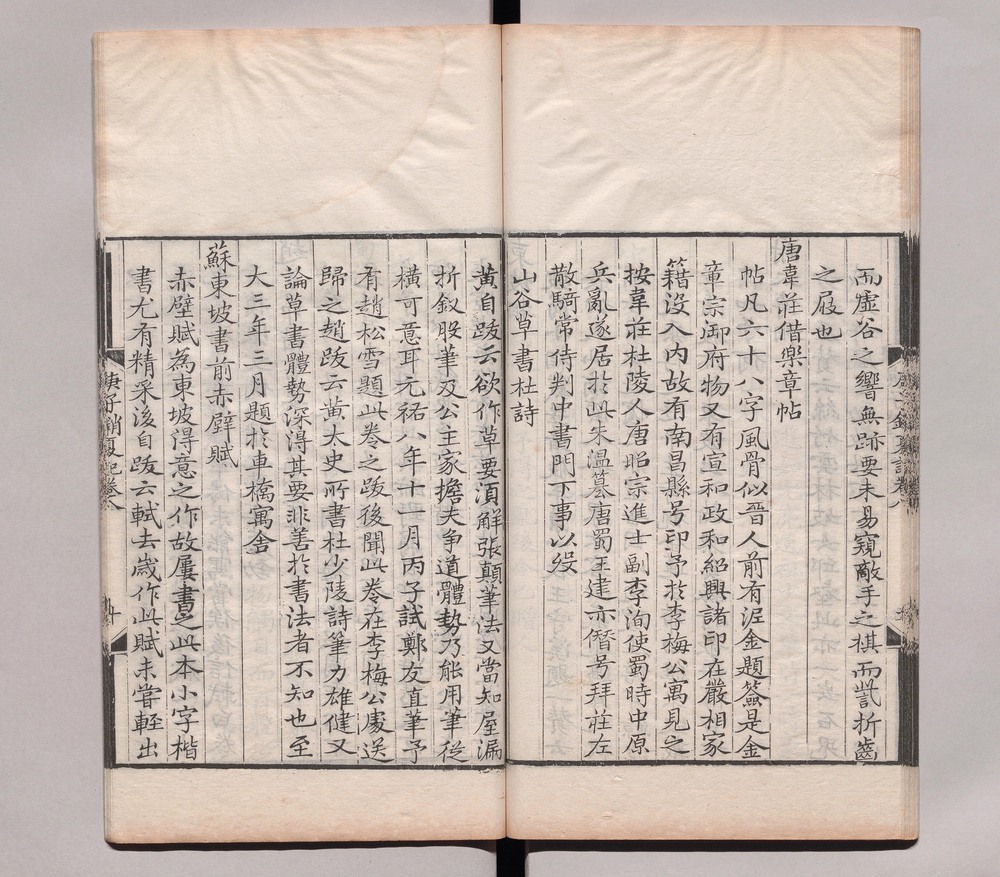 而虛谷之響無跡要未易窺敵手之棋而訾折齒
之屐也
唐韋莊借樂章帖
帖凡六十八字風骨似晉人前有泥金題簽是金
章宗御府物又有宣和政和紹興諸印在嚴相家
籍沒入內故有南昌縣号印予於李梅公寓見之
按韋莊杜陵人唐昭宗進士副李洵使蜀時中原
兵亂遂居於此朱溫篡唐蜀王建亦僭号拜莊左
散騎常侍判中書門下事以歿
山谷草書杜詩
黃自跋云欲作草要湏解張顛筆法又當知屋漏
折釵股筆及公主家擔夫争道體勢乃能用筆從
橫可意耳元祐八年十一月丙子試鄭友直筆予
有趙松雪題此卷之跋後聞此卷在李梅公處送
歸之趙跋云黃太史所書杜少陵詩筆力雄健又
論草書體勢深淂其要非善於書法者不知也至
大三年三月題於車橋寓舍
蘇東坡書前赤壁賦
赤壁賦為東坡得意之作故屢書之此本小字楷
書尤有精采後自跋云軾去歲作此賦未嘗輕出
庚子銷夏記卷八